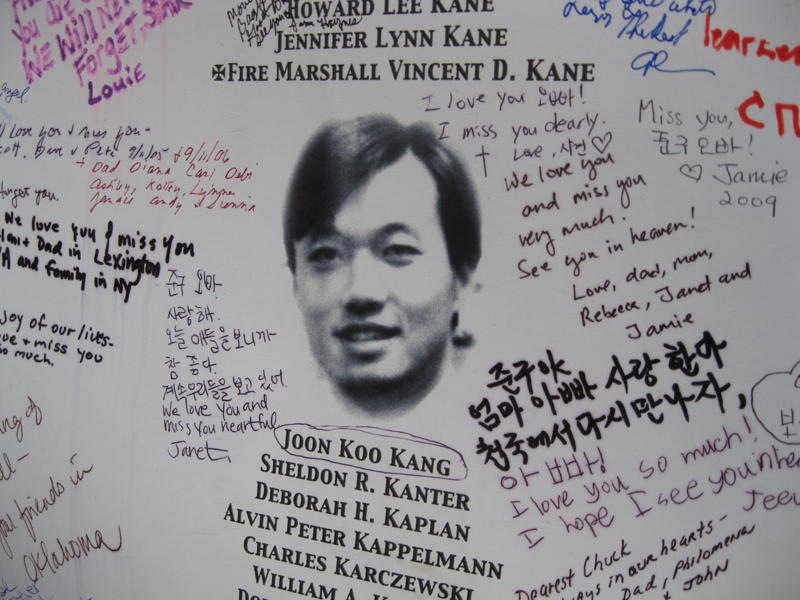 HOWARD LEE KANE
JENNIFER LYNN KANE
✠FIRE MARSHALL VINCENT D. KANE
You are
We Will Not
Forget,
Louie
learned
I love you 오빠!
I miss you dearly.
Love,
We love you
and miss you
very much.
See you in heaven!
Love, dad, mom,
Rebecca, Janet and
Jamie
Miss you,
준구 오빠!
♡ Jamie
2009
love you & miss you-
& Pete 9/11/05 + 9/11/06
+ Dad Diana Carl Debi
Ashley,
andy &
forget you.
We love you & miss you
+ Dad in Lexington
and family in NY
joy of our lives-
love + miss you
so much.
준구 오빠.
사랑해.
오늘 애들을 보니까
참 좋다.
계속 우리들을 보고 있어.
We love You and
miss you heartful
Janet
준구야
엄마 아빠 사랑한다
천국에서 다시 만나자,
아빠!
I love you so much!
I hope I see you in
JOON KOO KANG
SHELDON R. KANTER
DEBORAH H. KAPLAN
ALVIN PETER KAPPELMANN
CHARLES KARCZEWSKI
WILLIAM A.
friends in
Oklahoma
Dearest Chuck
always in our hearts-
Dad, Philomena
+ John